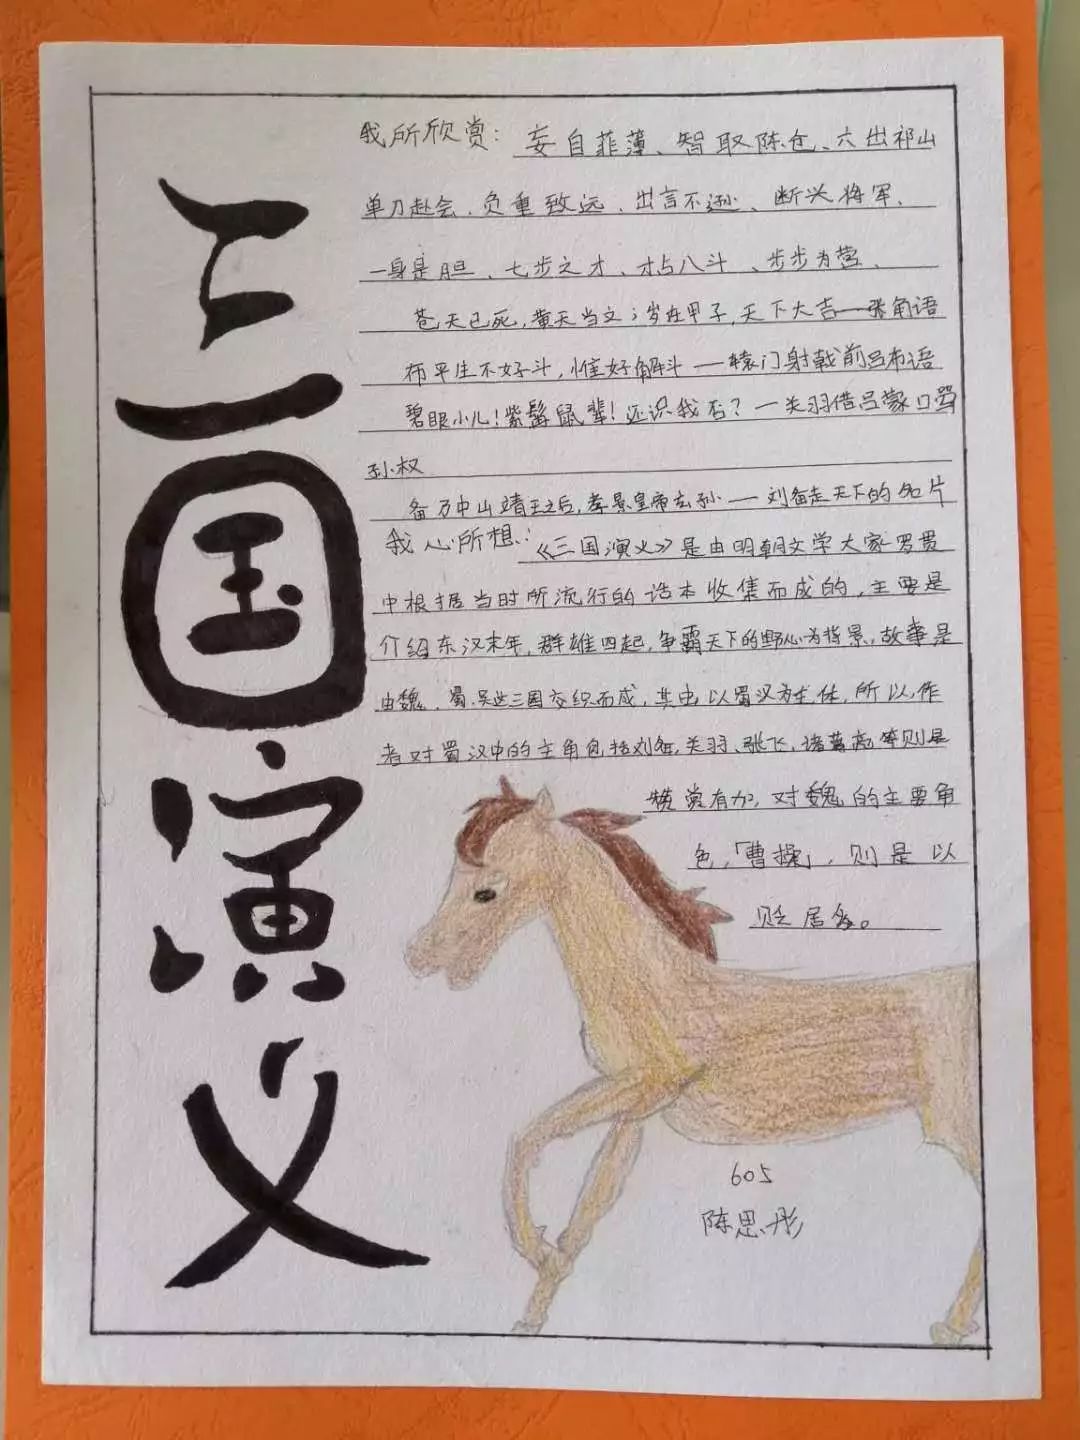 三国演义
我所欣赏：妄自菲薄、智取陈仓、六出祁山
单刀赴会、负重致远、出言不逊、断头将军、
一身是胆、七步之才、才占八斗、步步为营、
苍天已死，黄天当立；岁在甲子，天下大吉——张角语
布平生不好斗，惟好解斗——辕门射戟前吕布语
碧眼小儿！紫髯鼠辈！还识我否？一关羽借吕蒙口骂
孙权
备乃中山靖王之后，孝景皇帝玄孙——刘备走天下的名片
我心所想：《三国演义》是由明朝文学大家罗贯
中根据当时所流行的话本收集而成的，主要是
介绍东汉末年，群雄四起，争霸天下的野心为背景，故事是
由魏、蜀、吴这三国交织而成，其中以蜀汉为主体，所以，作
者对蜀汉中的主角包括刘备，关羽、张飞，诸葛亮等则是
赞赏有加，对魏的主要角
色，「曹操」，则是以
贬居多。
605
陈思彤